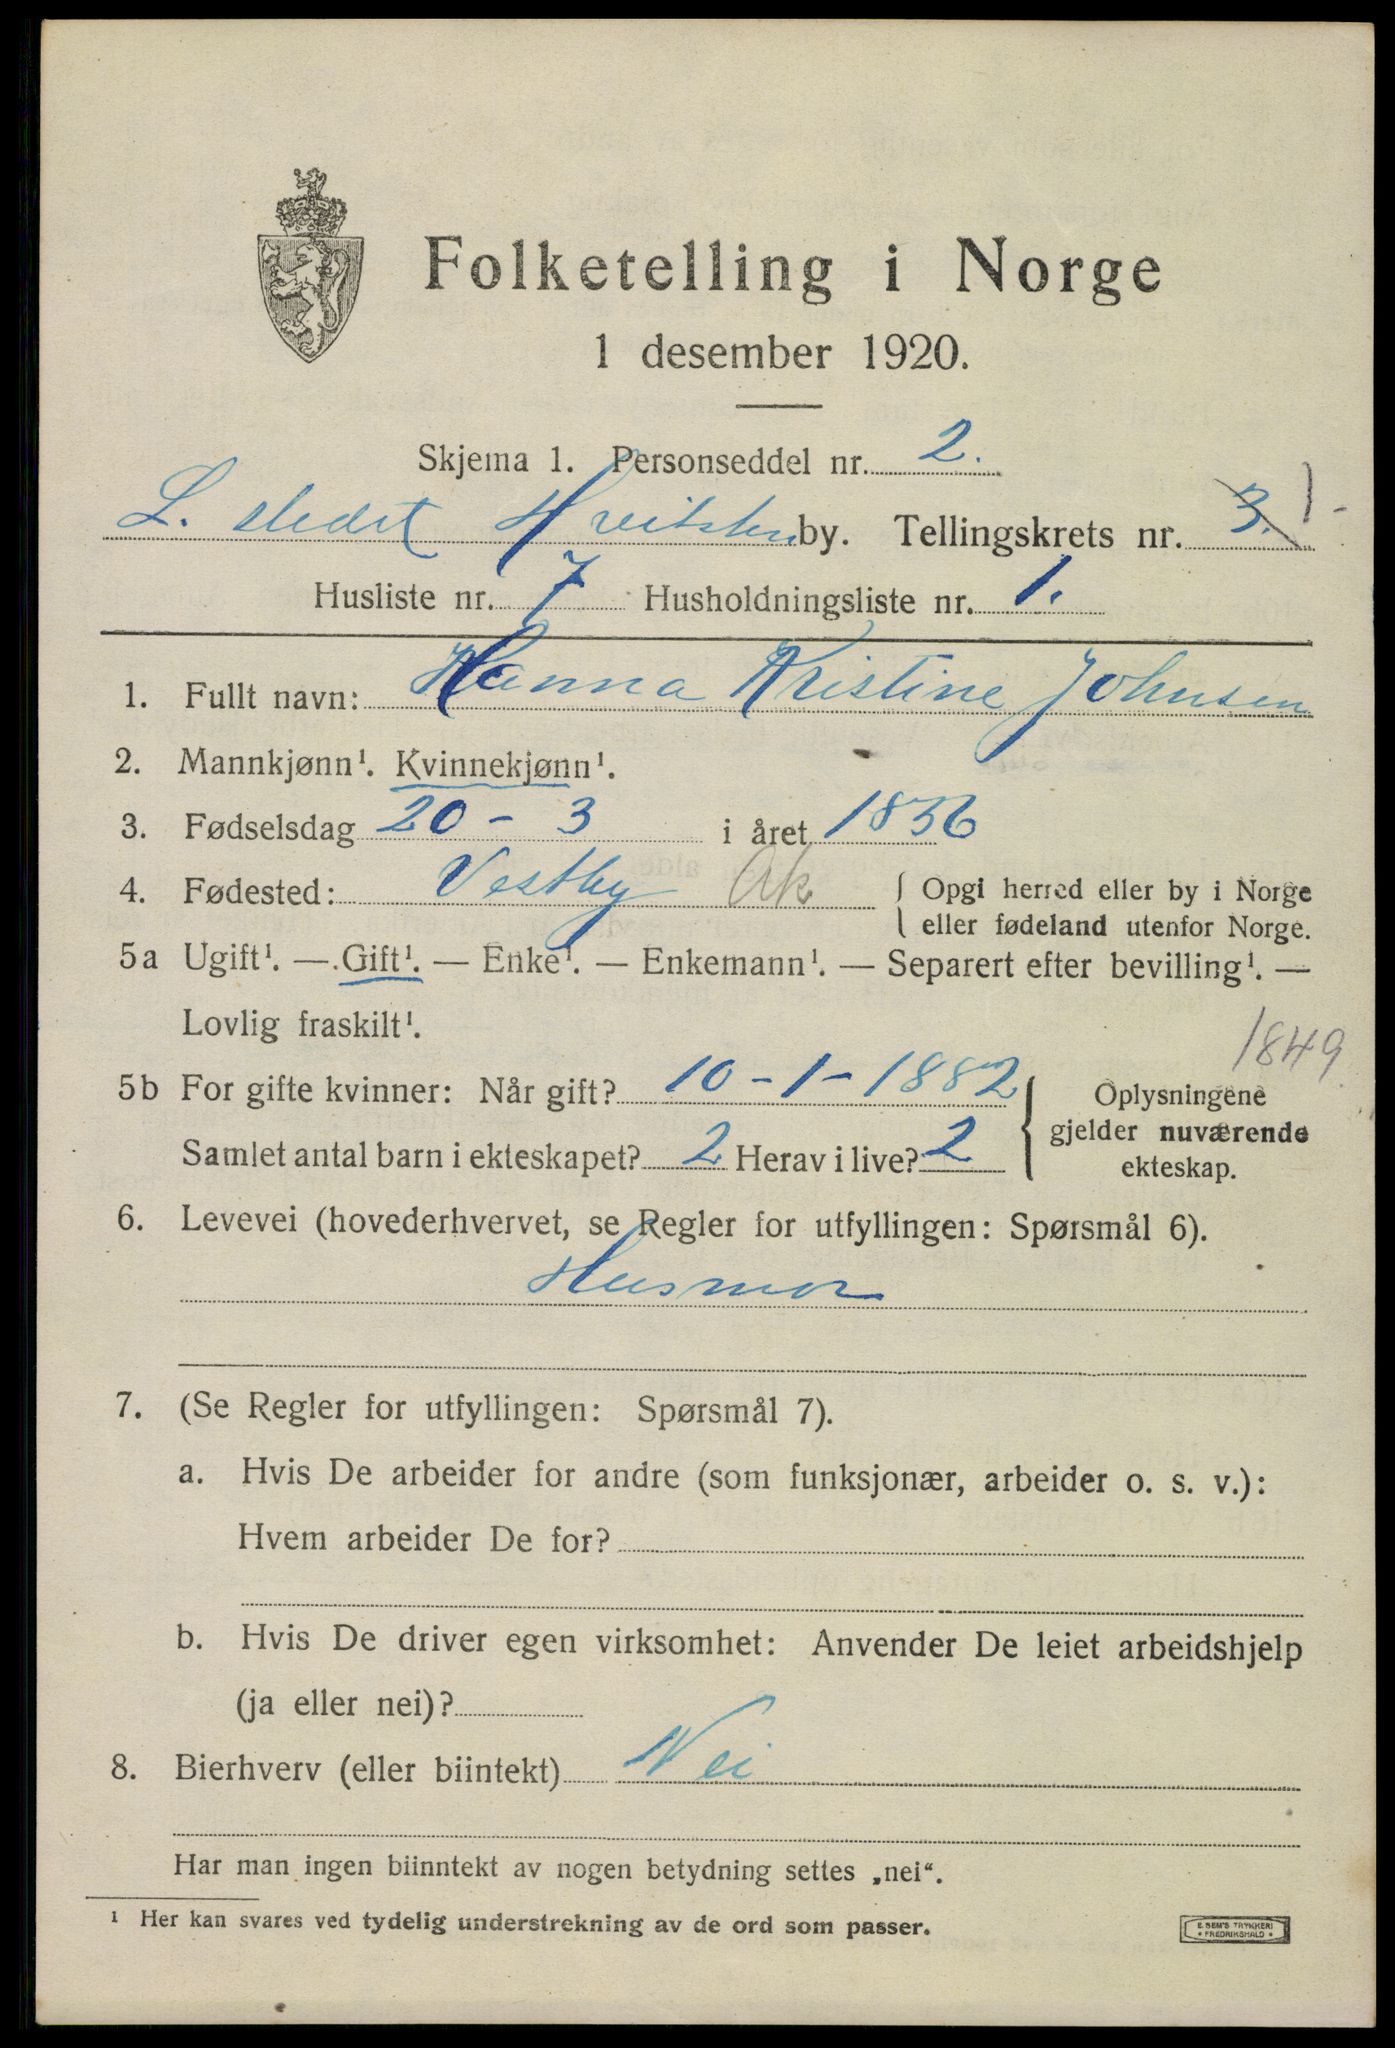 Folketelling i Norge
1 desember 1920.
Skjema 1. Personseddel nr. 2.
L. stedet Hvitsten by. Tellingskrets nr. 3. 1-
Husliste nr. 7 Husholdningsliste nr. 1.
1. Fullt navn: Hanna Kristine Johnsen
2. Mannkjønn¹. Kvinnekjønn¹.
3. Fødselsdag 20 - 3 i året 1856
4. Fødested: Vestby Ak { Opgi herred eller by i Norge
eller fødeland utenfor Norge.
5a Ugift¹. — Gift¹. — Enke¹. — Enkemann¹. — Separert efter bevilling¹. —
Lovlig fraskilt¹.
1849
5b For gifte kvinner: Når gift? 10-1-1882 { Oplysningene
gjelder nuværende
Samlet antal barn i ekteskapet? 2 Herav i live? 2
ekteskap.
6. Levevei (hovederhvervet, se Regler for utfyllingen: Spørsmål 6).
Husmor
7. (Se Regler for utfyllingen: Spørsmål 7).
a. Hvis De arbeider for andre (som funksjonær, arbeider o. s. v.):
Hvem arbeider De for?
b. Hvis De driver egen virksomhet: Anvender De leiet arbeidshjelp
(ja eller nei)?
8. Bierhverv (eller biintekt) Nei
Har man ingen biinntekt av nogen betydning settes „nei“.
¹ Her kan svares ved tydelig understrekning av de ord som passer.
E. SEM'S TRYKKERI
• FREDRIKSHALD •